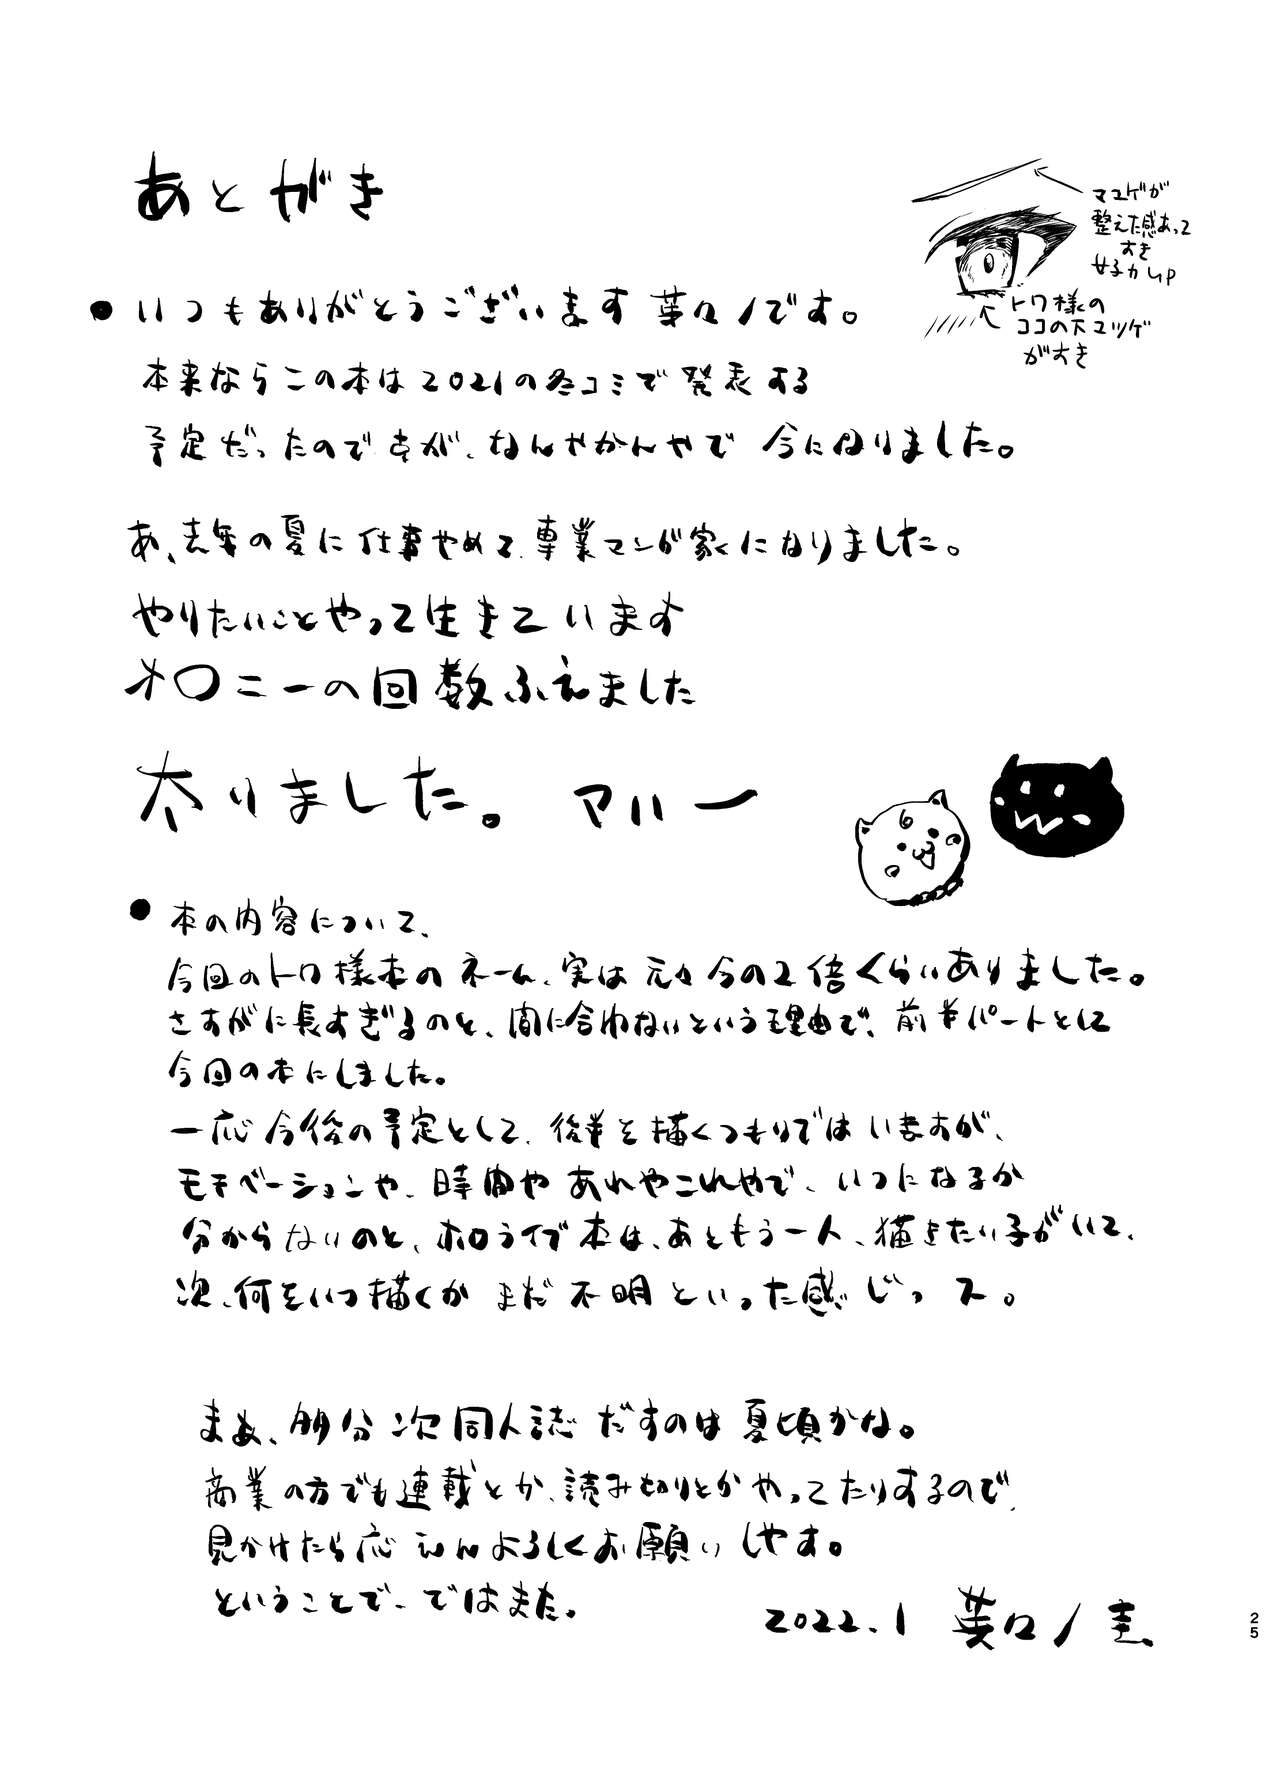 あとがき
マユゲが
整えた感あって
すき
女子力UP
トワ様の
ココの下マツゲ
がすき
● いつもありがとうございます 葉々ノです。
本来ならこの本は2021の冬コミで発表する
予定だったのですが、なんやかんやで 今になりました。
あ、去年の夏に仕事やめて、専業マンが家になりました。
やりたいことやって生きています
オ〇ニーの回数ふえました
太りました。 マハー
● 本の内容について、
今回のトワ様本のネーム、実は元々今の2倍くらいありました。
さすがに長すぎるのと、間に合わないという理由で、前半パートとして
今回の本にしました。
一応今後の予定として、後半を描くつもりではいますが、
モチベーションや、時間やあれやこれやで、いつになるか
分からないのと、ホロライブ本は、あともう一人、描きたい子がいて、
次、何をいつ描くか まだ不明といった感じっス。
まぁ、多分次同人誌だすのは夏頃かな。
商業の方でも連載とか、読み切りとかやってたりするので、
見かけたら応えんよろしくお願いしやす。
ということで、ではまた。
2022.1 葉々ノ圭
25